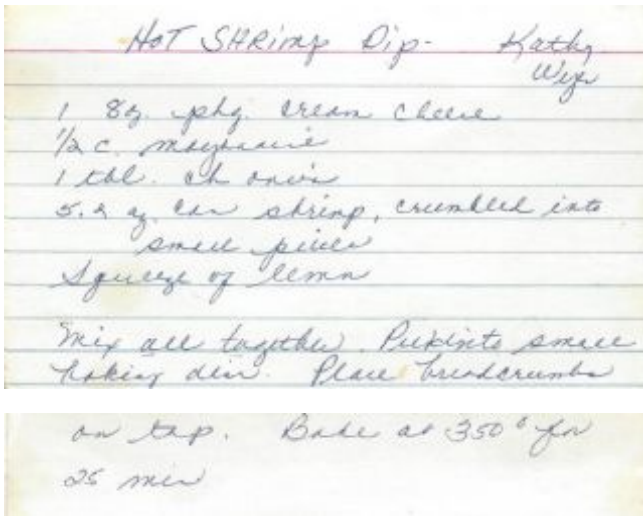 HOT SHRimp Dip- Kathy
1 8oz. pkg. cream cheese
1/2 c. mayonnaise
1 tbl. ch onion
5.2 oz. can shrimp, crumbled into
small pieces
Squeeze of lemon
Mix all together. Put into small
baking dish. Place breadcrumbs
on top. Bake at 350° for
25 min